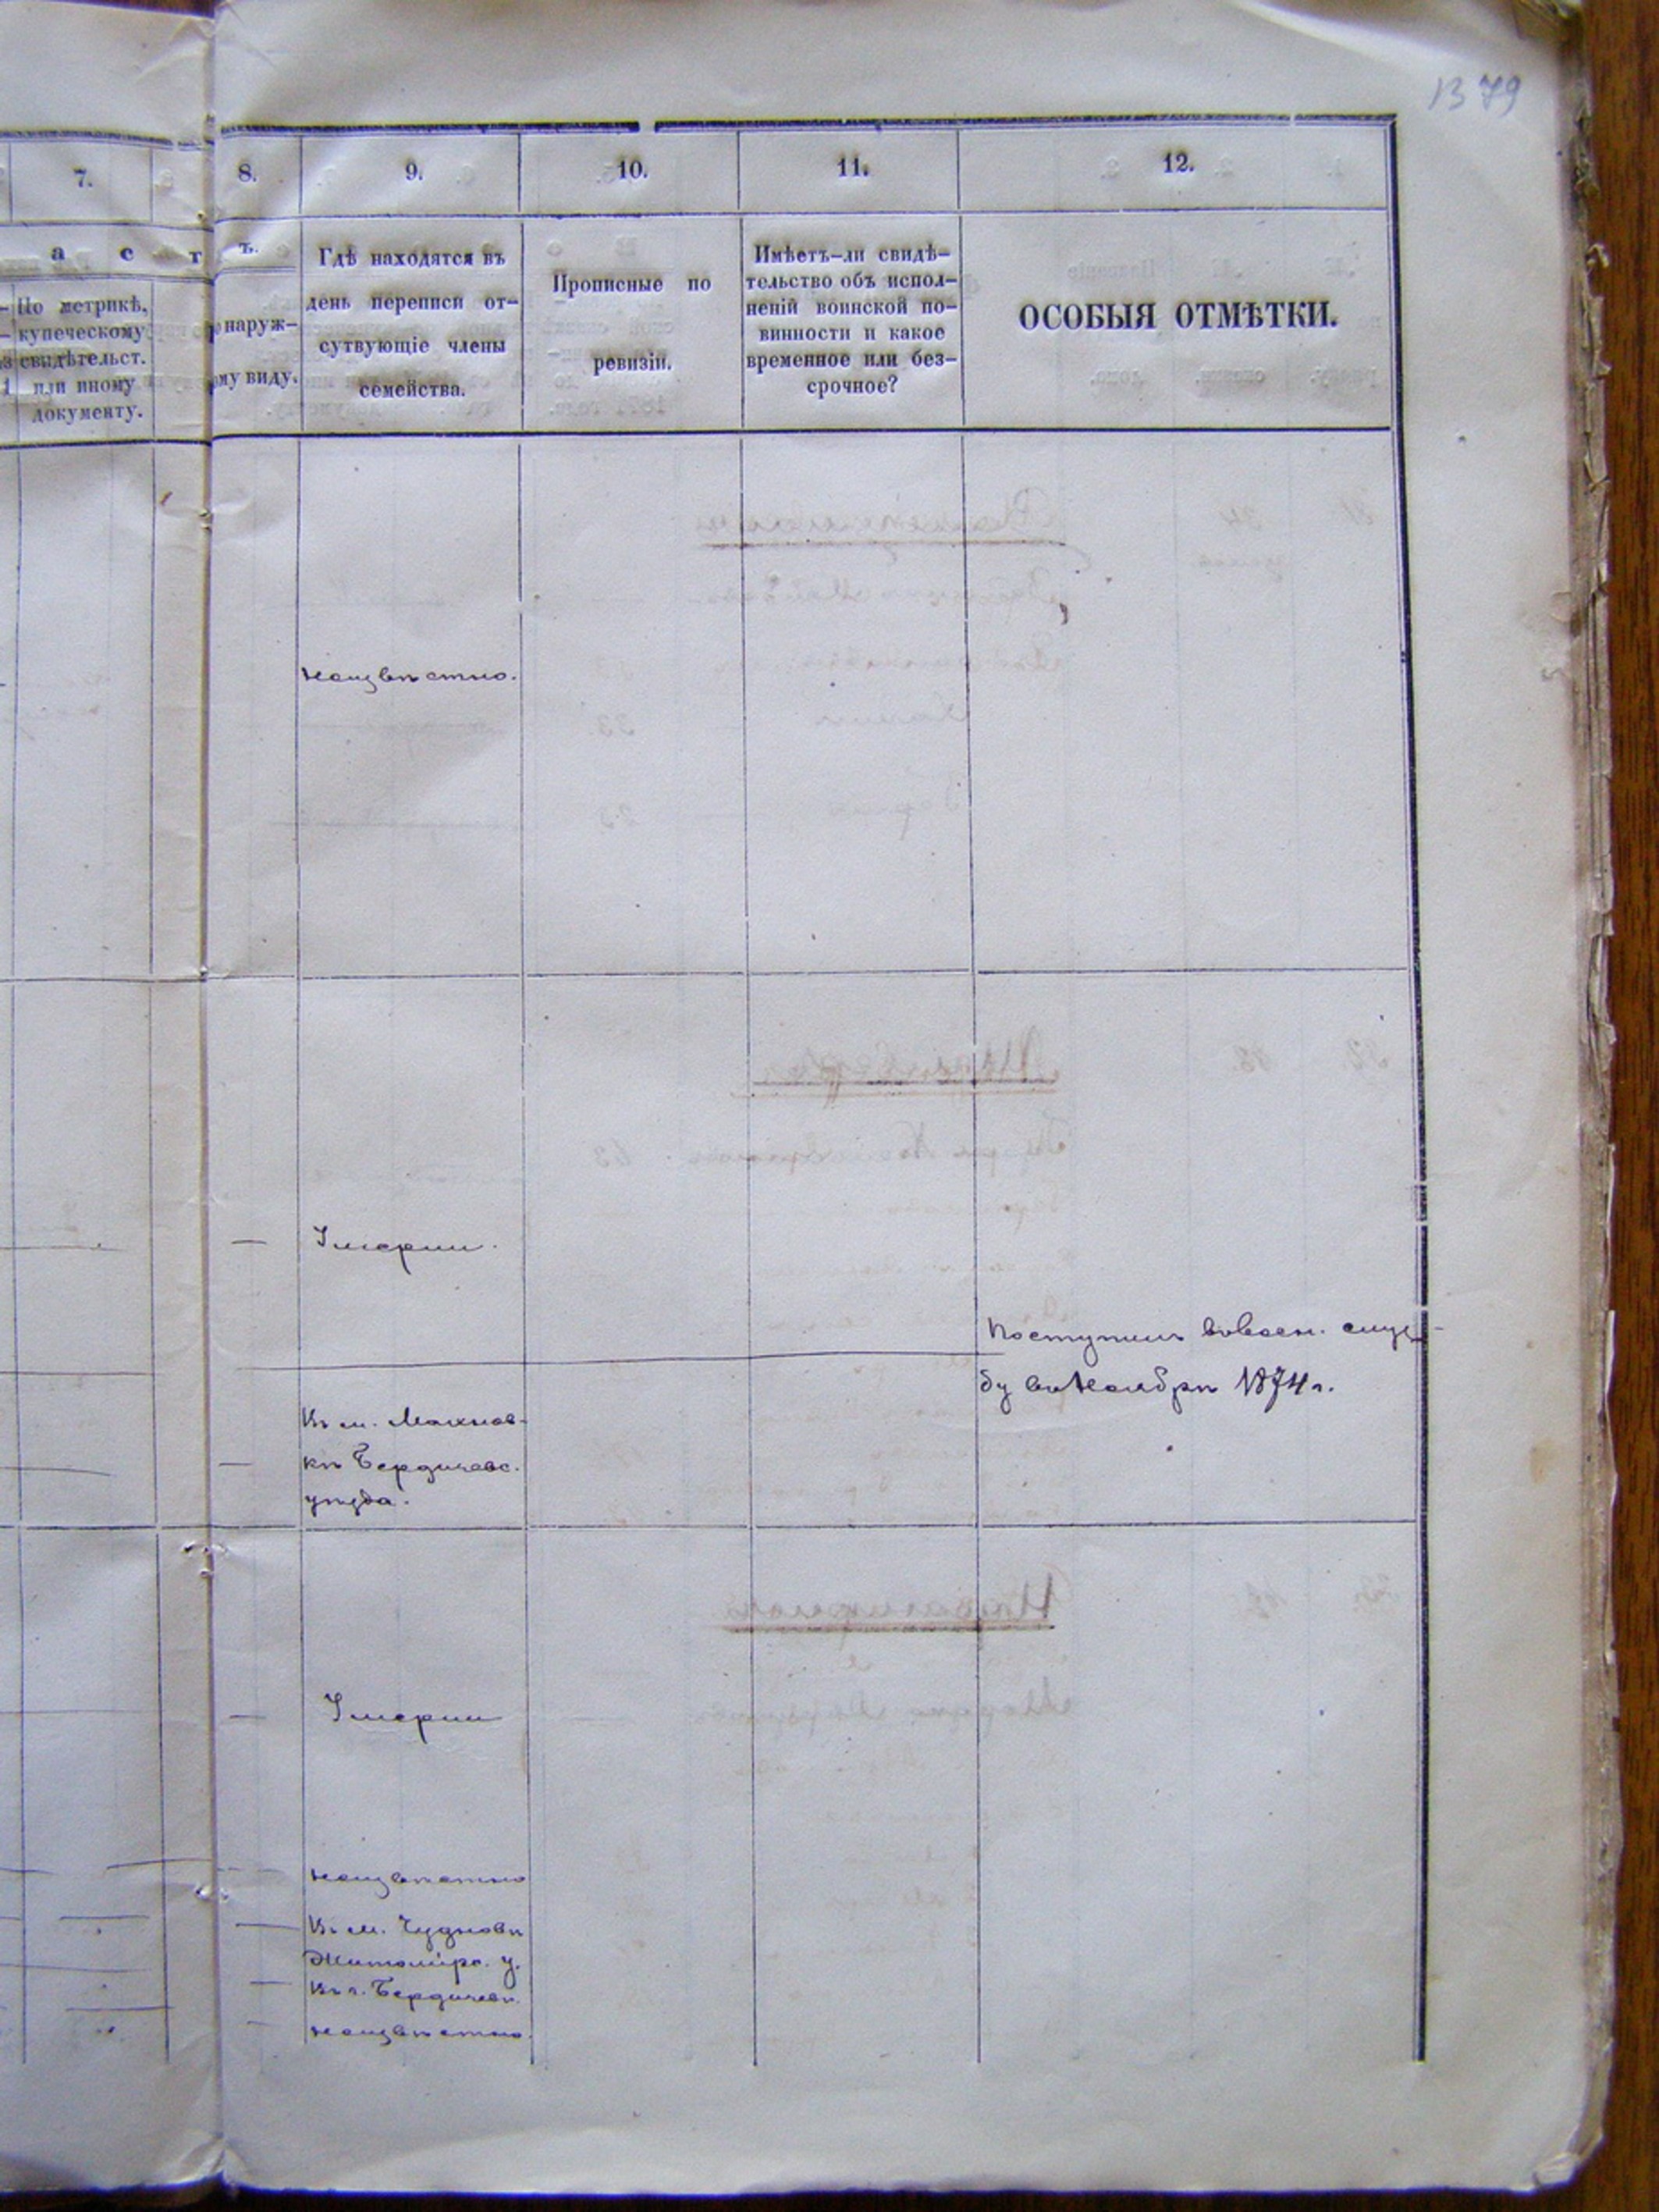 1379
7.
8.
9.
10.
11.
12.
а с т
ъ.
По метрикѣ,
купеческому
свидѣтельст.
или иному
документу.
наруж–
му виду.
Гдѣ находятся въ
день переписи от–
сутвующіе члены
семейства.
Прописные по
ревизіи.
Имѣетъ–ли свидѣ–
тельство объ испол–
неній воинской по–
винности и какое
временное или без–
срочное?
ОСОБЫЯ ОТМѢТКИ.
неизвѣстно.
— Умерши.
Поступилъ въ воен. служ–
бу въ Ноябрѣ 1874 г.
Въ м. Махнов–
— кѣ Бердичевс.
уѣзда.
— Умерши
неизвѣстно
— Въ м. Чудновѣ
Житомірс. у.
— Въ г. Бердичевѣ.
неизвѣстно.